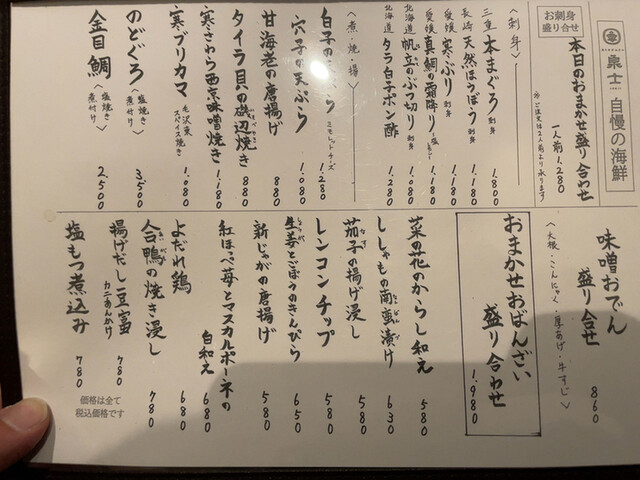 自慢の海鮮
お刺身
盛り合せ
本日のおまかせ盛り合わせ
一人前 1,280
※ご注文は2人前より承ります
〈刺身〉
三重 本まぐろ 刺身 1,800
長崎 天然ほうぼう 刺身 1,180
愛媛 寒ぶり 刺身 1,180
愛媛 真鯛の霜降り 1,180
北海道 帆立のぶつ切り 刺身 1,080
北海道 タラ白子ポン酢 1,280
〈煮・焼・揚〉
白子の ミモレットチーズ 1,280
穴子の天ぷら 1,080
甘海老の唐揚げ 880
タイラ貝の磯辺焼き 880
寒さわら西京味噌焼き 1,180
寒ブリカマ 毛沢東スパイス焼き 1,080
のどぐろ 〈塩焼き 煮付け〉 3,500
金目鯛 〈塩焼き 煮付け〉 2,500
味噌おでん
盛り合せ 860
〈大根・こんにゃく・厚あげ・牛すじ〉
おまかせおばんざい
盛り合わせ 1,980
菜の花のからし和え 580
ししゃもの南蛮漬け 630
茄子の揚げ浸し 580
レンコンチップ 580
生姜とごぼうのきんぴら 650
新じゃがの唐揚げ 580
紅ほっぺ苺とマスカルポーネの
白和え 680
よだれ鶏 680
合鴨の焼き浸し 780
揚げだし豆富 カニあんかけ 780
塩もつ煮込み 780
価格は全て
税込価格です